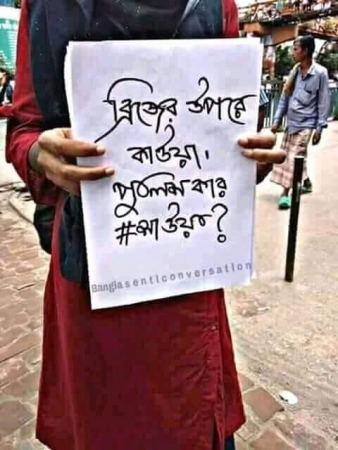 ব্রিজের উপরে
কাউয়া,
পুলিশ কার
#মাউয়া?
Bangla senti conversation